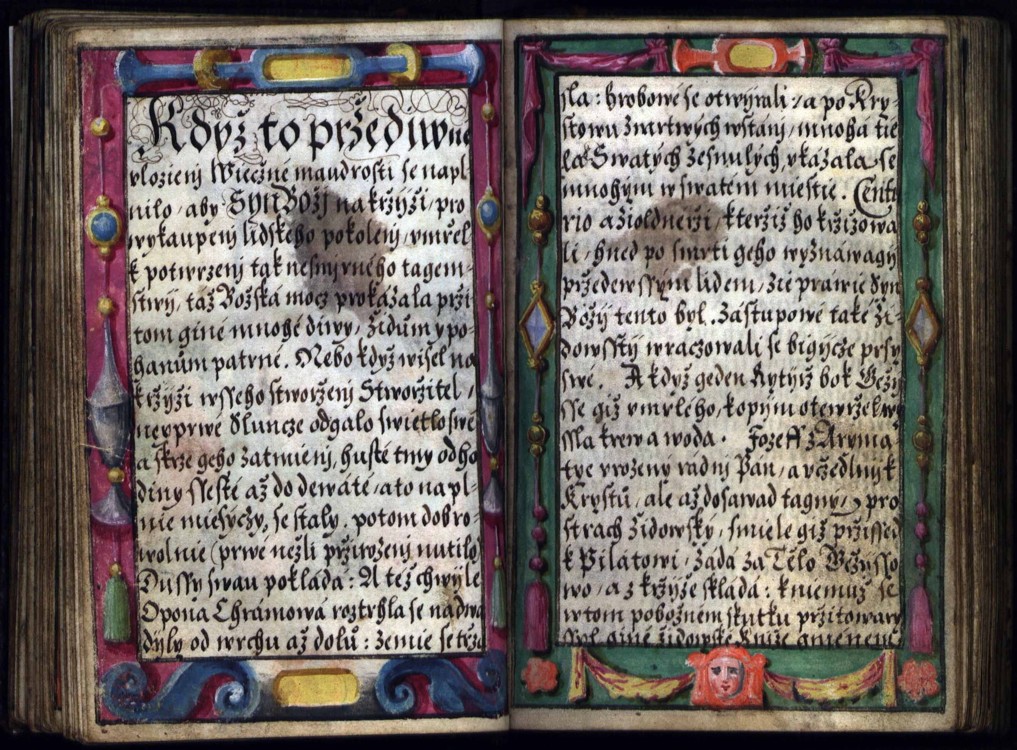 Když to přžediwne
vloženj Wiečzné maudrosti se napl-
nilo, aby Syn Božj na křžjži, pro
wykaupenj lidského pokolenj, vmřel
k potwrzenj tak nesmjrného tagem-
stwj, táž Božská mocz prokázala přži
tom giné mnohé diwy, židům y po-
hanům patrné. Nebo když wisel na
křžjži wsseho stworženj Stworžitel,
neyprwé Sluncze odgalo swietlo swé
a skrze geho zatmienj, husté tmy od ho-
diny ssesté až do dewáté, a to na pl-
nie miesyczy, se staly. potom dobro-
wolnie (prwé nežli přžirozenj nutilo)
Dussy swau pokládá: A též chwjle
Opona Chrámowá roztrhla se na dwa
djly od wrchu až dolů: zemie se třžá-
sla: hrobowé se otwjrali, a po Kry-
stowu z mrtwých wstánj, mnohá tie
la Swatých zesnulých, vkázala se
mnohým w swatém miestie. Centu
rio a žoldnerži, kteržiž ho křžižowa
li, hned po smrti geho wyznáwagj
přžede wssým lidem, žie prawie Syn
Božij tento byl. Zástupowé také ži-
dowsstj wraczowali se bigjcze prsy
swé. A když geden Rytjrž bok Gežjs
sse giž vmrlého, kopjm otewržel, wy
ssla krew a woda. Jozeff z Aryma-
tye vrozený rádnj Pán, a včzedlnjk
Krystů, ale až dosawad tagný, pro
strach židowský, smiele giž přžissed
k Pilátowi, žádá za Tělo Gežjsso
wo, a z křžjže skládá: k niemuž se
w tom pobožném skutku přžitowary
ssyl giné židowské Knjže gménem